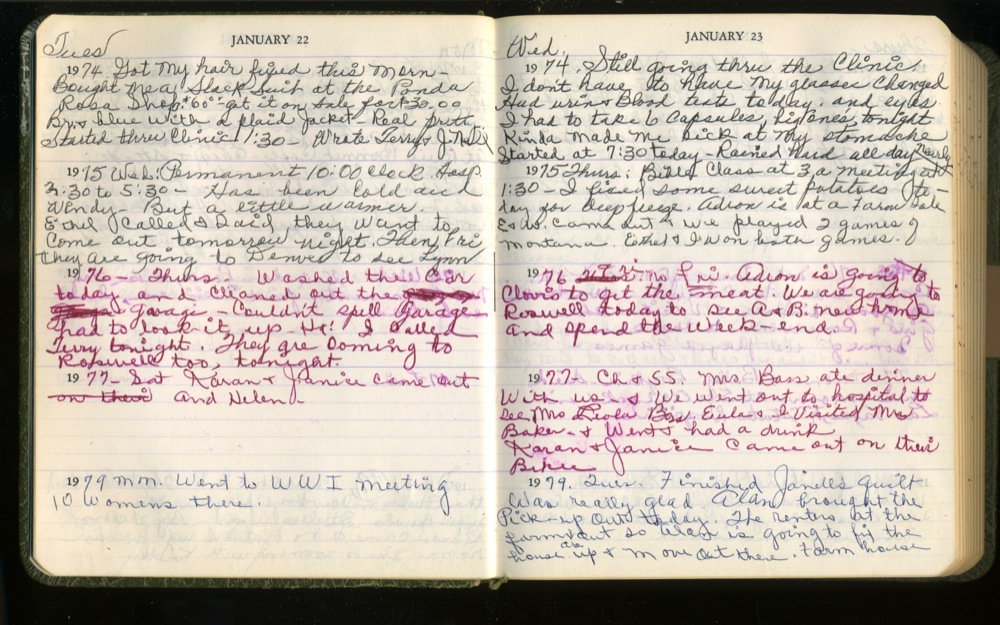 JANUARY 22
Tues
1974 Got My hair fixed this Morn-
Bought me a Slack Suit at the Ponda
Rosa Shop. $60.00 - got it on Sale for $30.00
blue with a plaid Jacket. Real prett
Started thru Clinic 1:30 - Wrote Terry & J.
1975 Wed. Permanent 10:00 clock. Hosp.
2:30 to 5:30 - Has been Cold and
Windy. But a little warmer.
Ethel Called & Said they Want to
Come out tomorrow night. Then Fri
they are going to Denver to see Lynn
1976 - Thurs. Washed the Car
today and Cleaned out the
Garage. Couldn't spell Garage
had to look it up - Ha! I Called
Terry tonight. They are Coming to
Roswell too, tonight.
1977 - Sat Karan & Janice Came Out
on their And Helen.
1979 Mon. Went to WWI Meeting
10 Womens there.
JANUARY 23
Wed.
1974. Still going thru the Clinic.
I don't have to have My glasses Changed
Had urin & Blood tests today. and eyes.
I had to take 6 Capsules, tonight
Kinda Made Me Sick at My stomache
Started at 7:30 today - Rained Hard all day Nearly
1975 Thurs. Bible Class at 3, a Meeting at
1:30 - I fixed some sweet potatoes to-
day for deepfreeze. Adron is at a Farm Sale
E & Came out & We played 2 games of
Montana. Ethel & I won both games.
1976 Fri. Adron is going to
Clovis to get the meat. We are going to
Roswell today to see A & B. new home
And spend the Week-end.
1977 - Ch & SS. Mrs Bass ate dinner
With us & We went out to hospital to
See Mrs Leola Box. Eula & I Visited Mrs
Baker - & Went & had a drink
Karan & Janice Came out on their
Bikes
1979. Tues. Finished Janells quilt
Was really glad. Alan brought the
Pick-up Out today. The renters left the
farm & out so Alan is going to fix the
house all up & Move Out there. Farm house